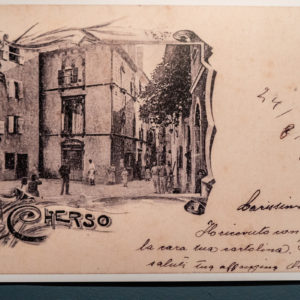 CHERSO
24/
Carissim
Ho ricevuto con
la cara tua cartolina.
saluti tua affezz